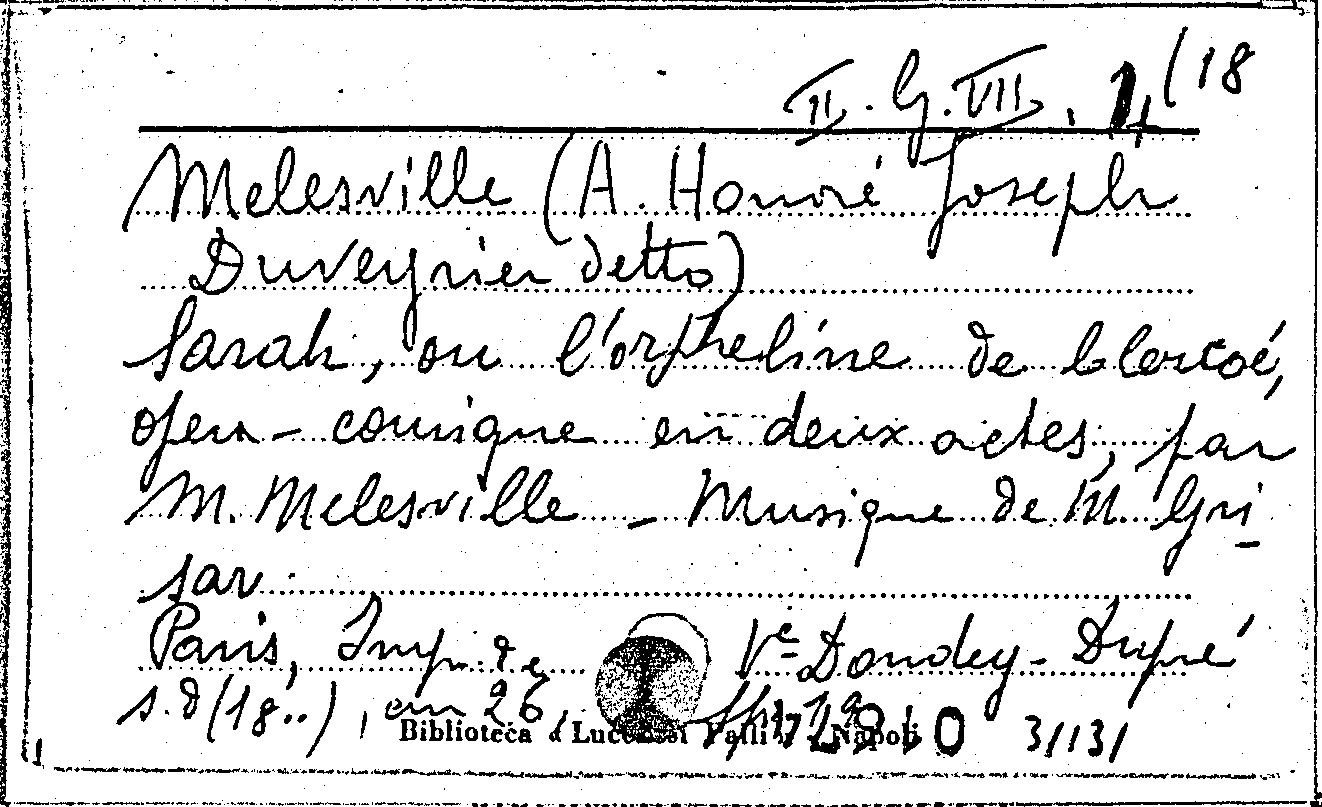 II. G. VII. 14/18
Melesville (A. Honoré Joseph
Duveyrier detto)
Sarah, ou l'orpheline de Glencoé,
opera-comique en deux actes, par
M. Melesville - Musique de M. Gri-
sar.
Paris, Imp. de Vᵉ Dondey-Dupré
s.d (18..), cm 26,
Biblioteca Lucchesi Palli Napoli 3/131